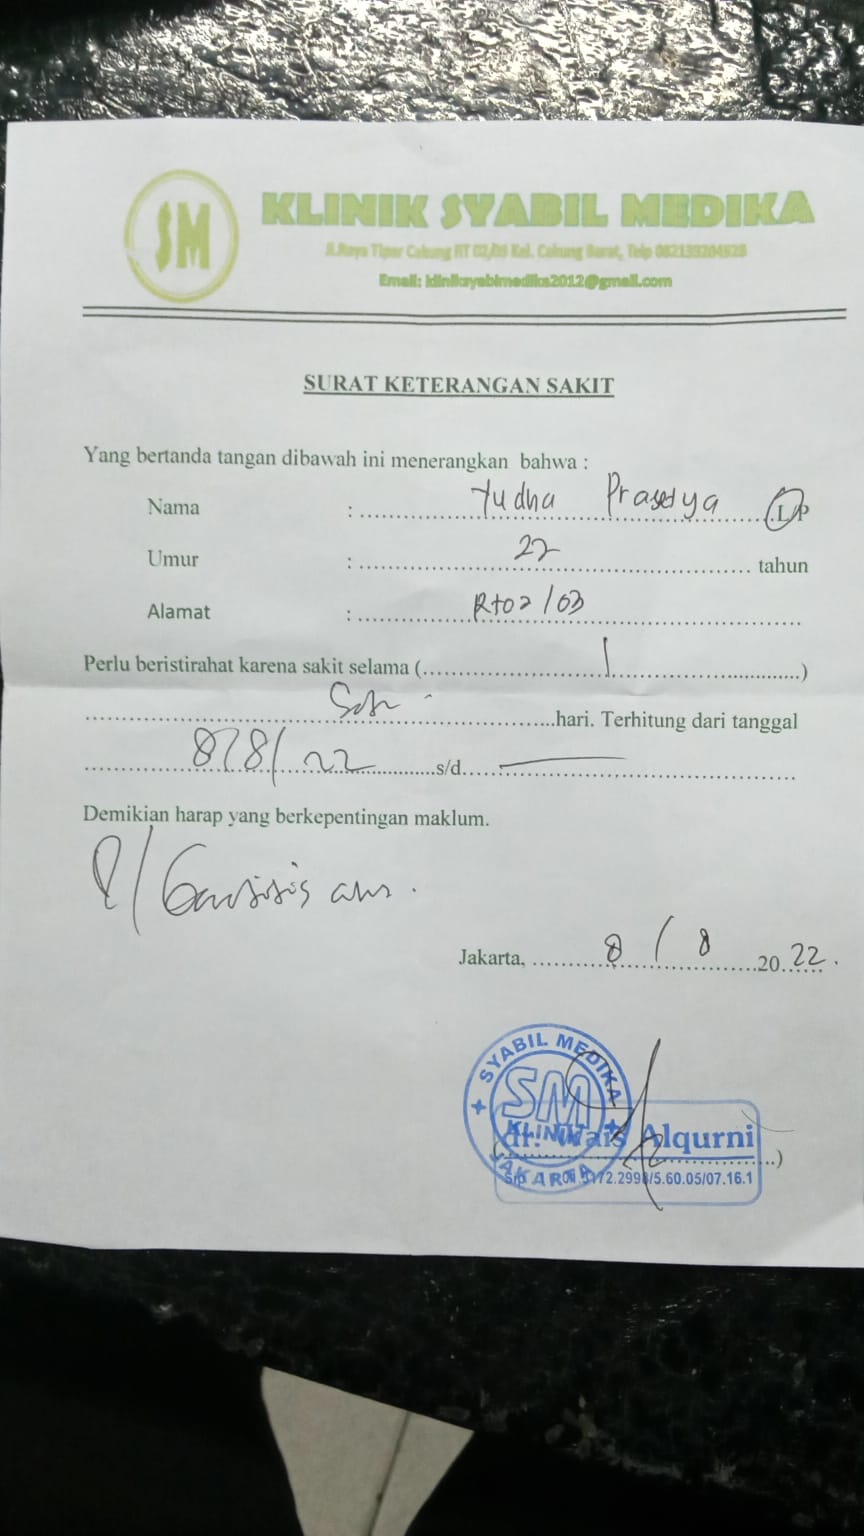 SM
KLINIK SYABIL MEDIKA
Jl.Raya Tipar Cakung RT 02/08 Kel. Cakung Barat, Telp
Email: kliniksyabilmedika2012@gmail.com
SURAT KETERANGAN SAKIT
Yang bertanda tangan dibawah ini menerangkan bahwa :
Nama : Yudha Prasetya L/P
Umur : 22 tahun
Alamat : Rt02/03
Perlu beristirahat karena sakit selama ( 1 )
hari. Terhitung dari tanggal
8/8/22 s/d —
Demikian harap yang berkepentingan maklum.
Jakarta, 8 / 8 2022.
SYABIL MEDIKA
SM
KLINIK
JAKARTA
Alqurni